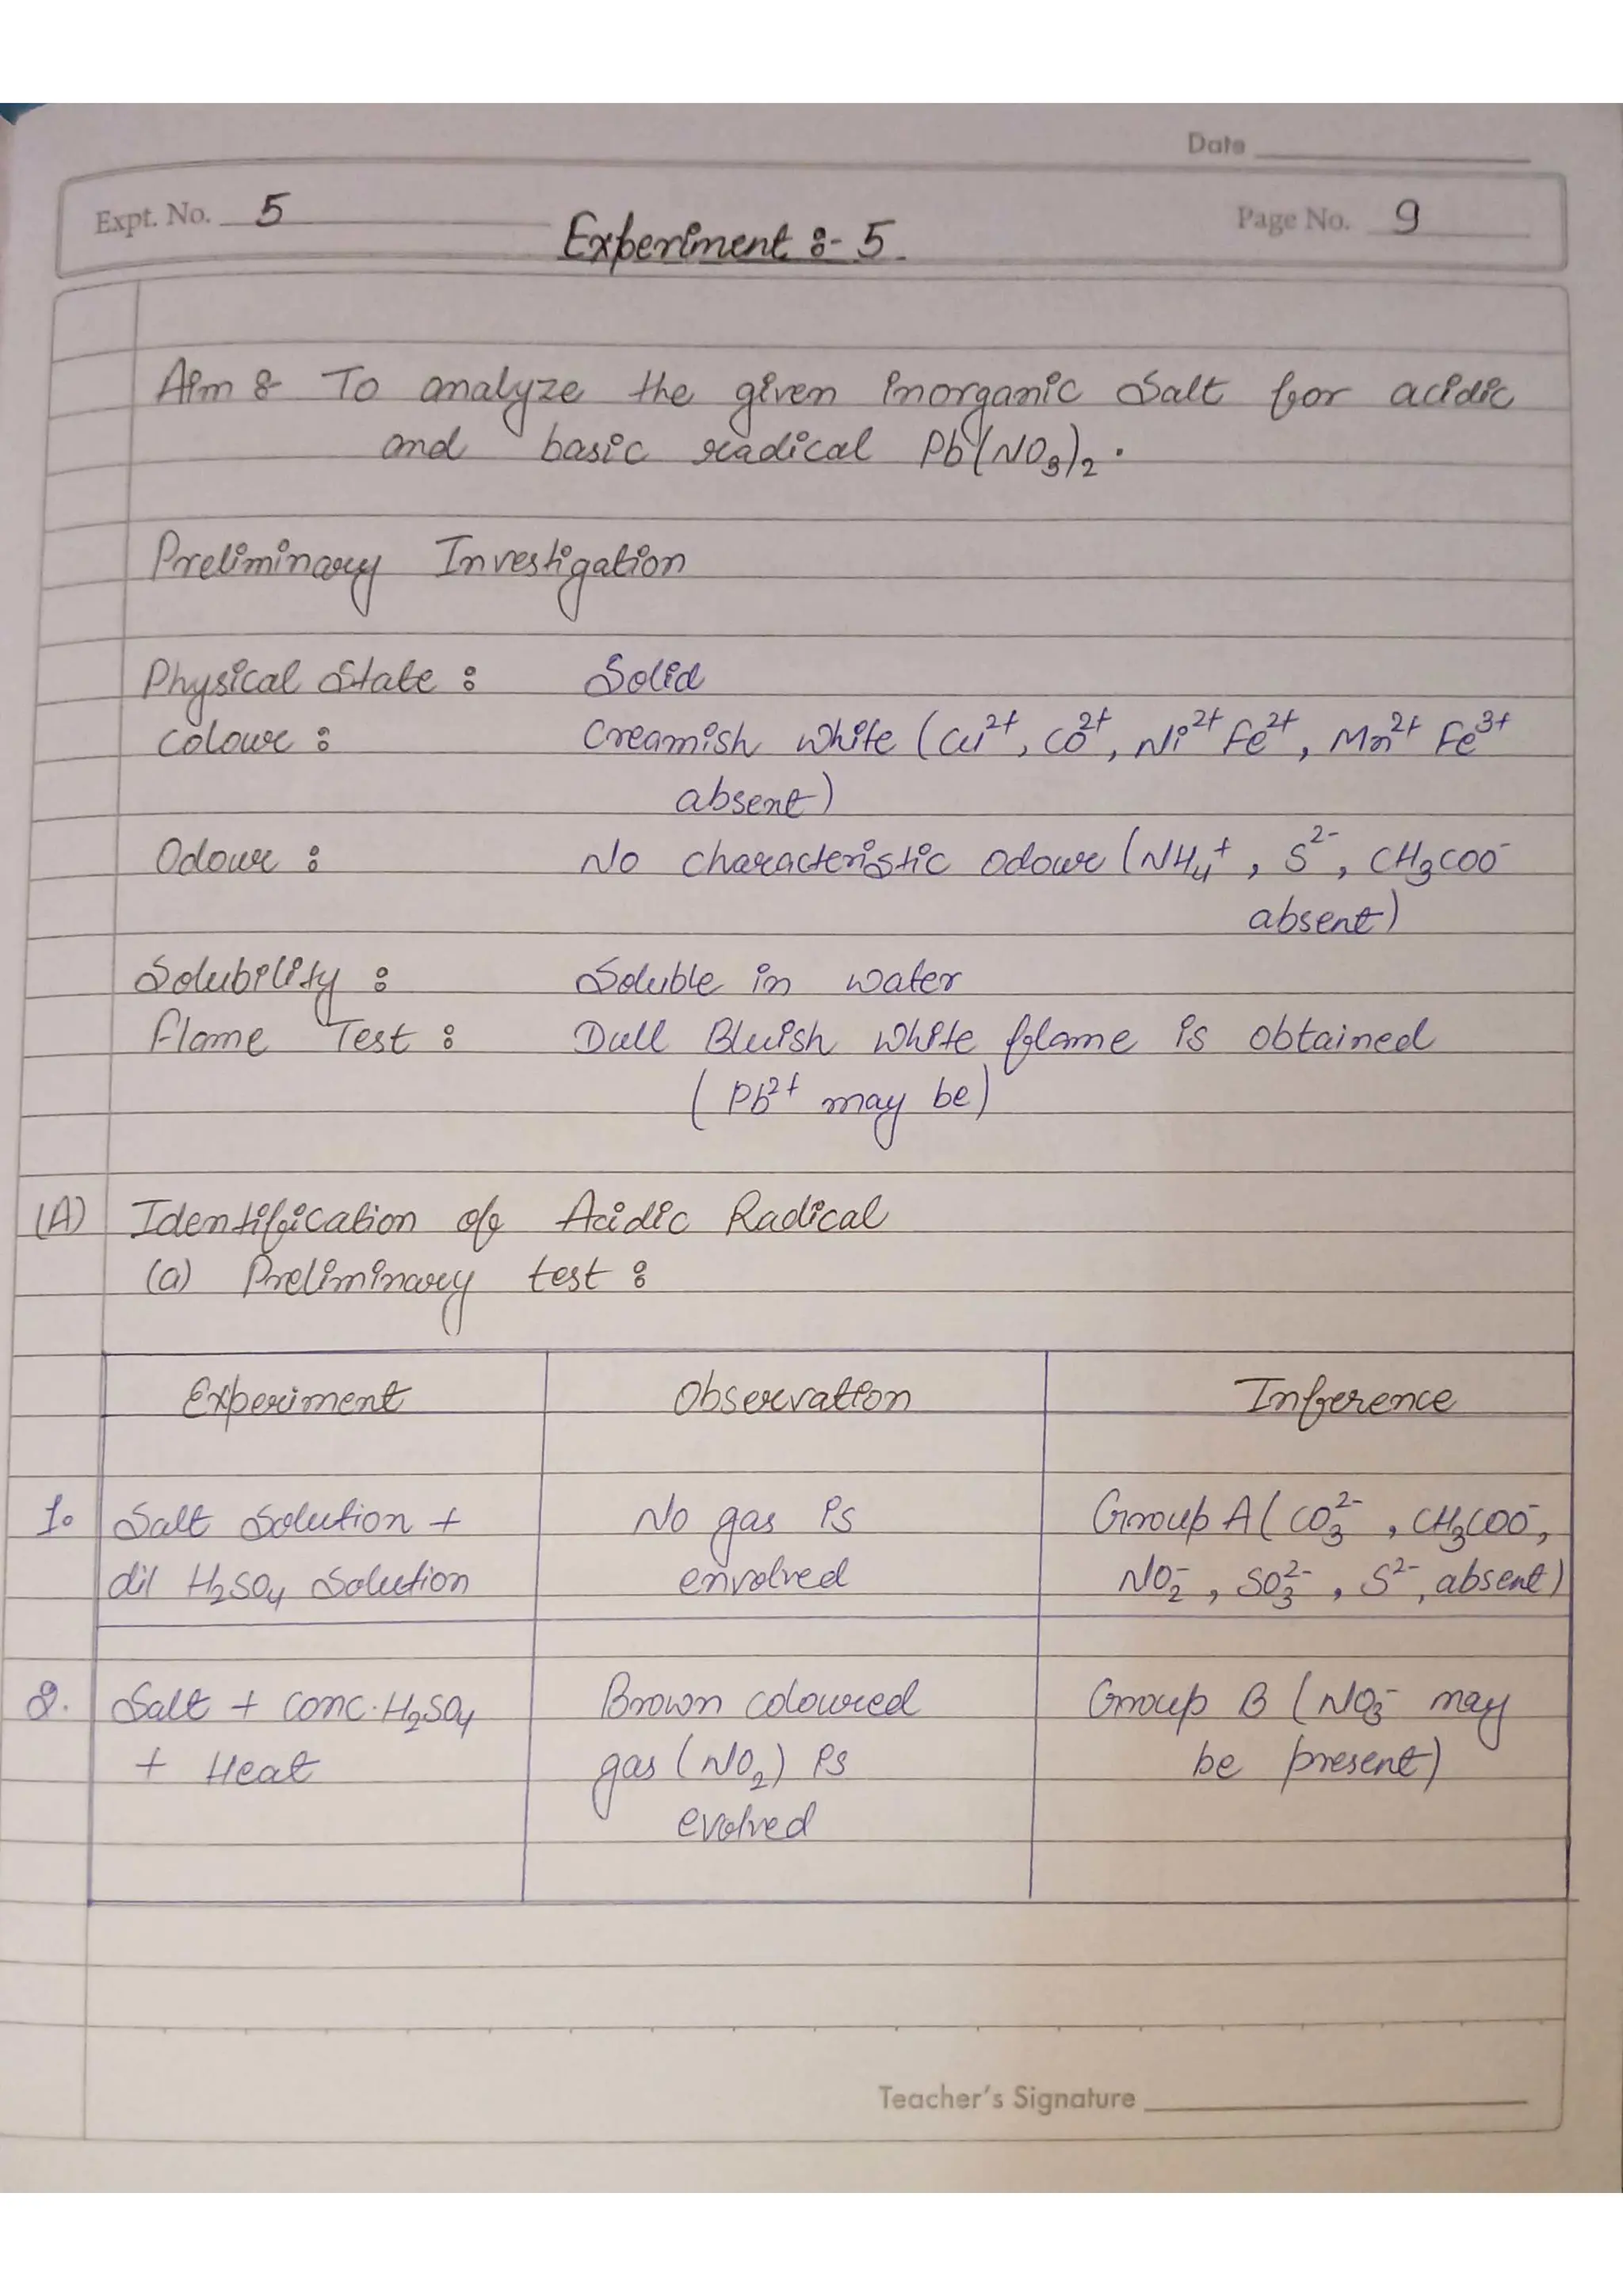 Date
Expt. No. 5
Page No. 9
Experiment :- 5
Aim :- To analyze the given inorganic salt for acidic
and basic radical Pb(NO₃)₂.
Preliminary Investigation
Physical State : Solid
Colour : Creamish white (Cu²⁺, Co²⁺, Ni²⁺ Fe²⁺, Mn²⁺ Fe³⁺
absent)
Odour : No characteristic odour (NH₄⁺, S²⁻, CH₃COO⁻
absent)
Solubility : Soluble in water
Flame Test : Dull Bluish white flame is obtained
(Pb²⁺ may be)
(A) Identification of Acidic Radical
(a) Preliminary test :
Experiment Observation Infrerence
1. Salt solution + No gas is Group A (CO₃²⁻, CH₃COO⁻,
dil H₂SO₄ solution envolved NO₂⁻, SO₃²⁻, S²⁻, absent)
2. Salt + conc. H₂SO₄ Brown coloured Group B (NO₃⁻ may
+ Heat gas (NO₂) is be present)
evolved
Teacher's Signature